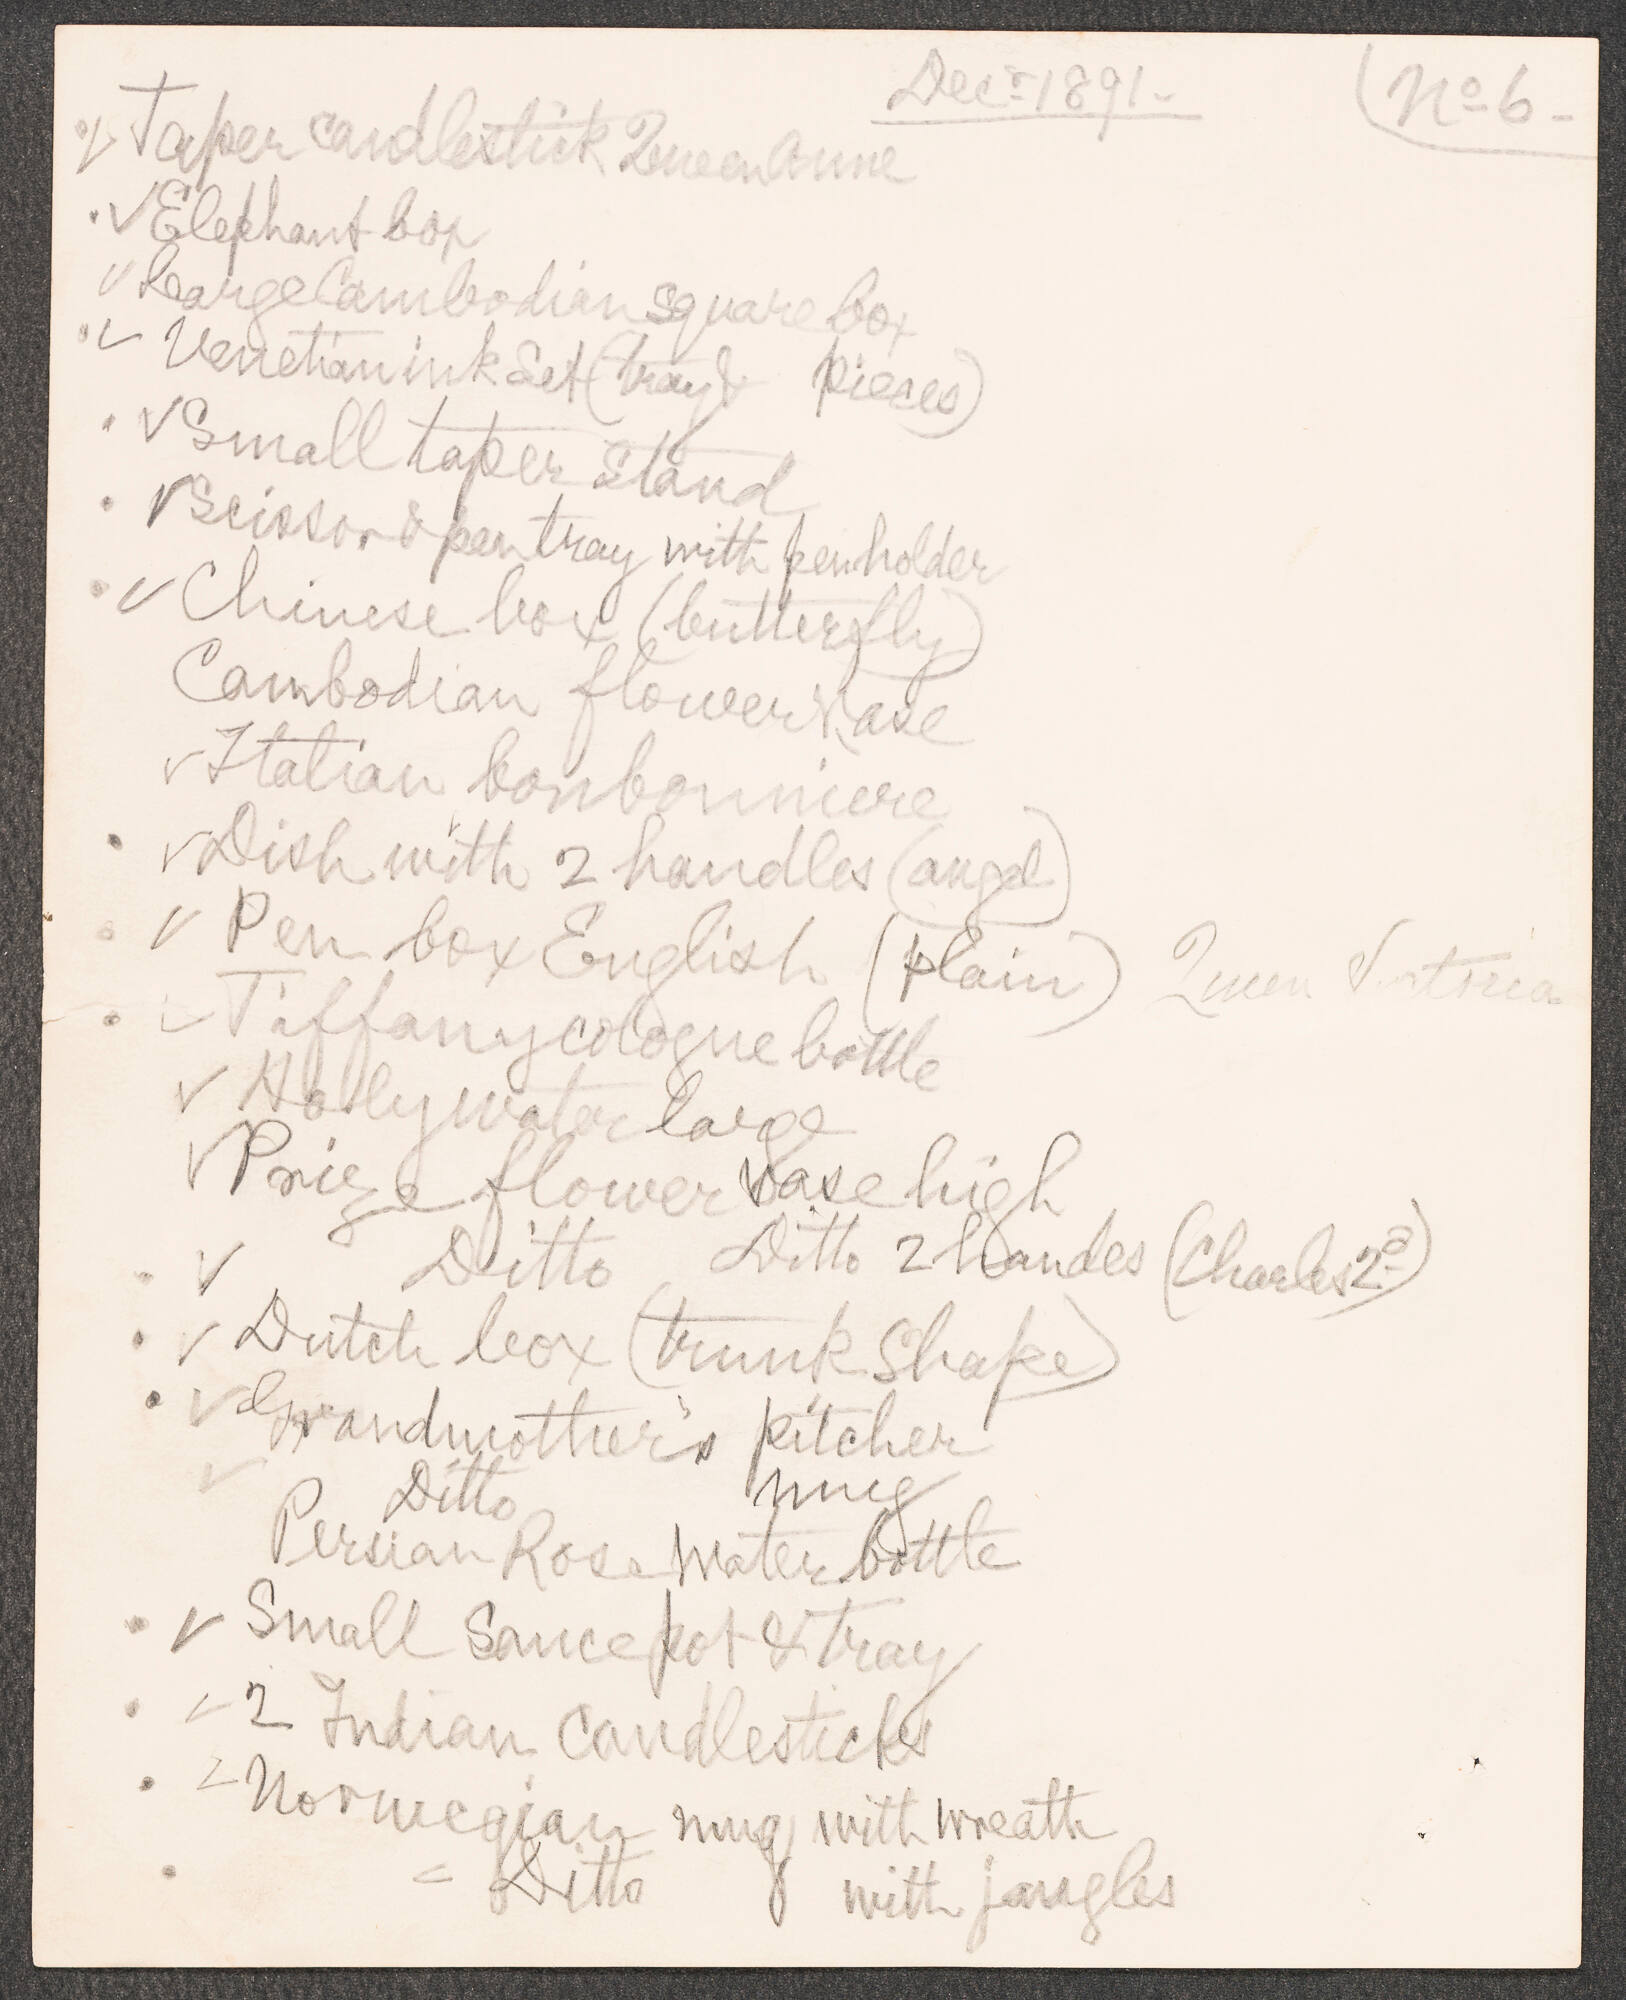 Decr 1891 -
No 6 -
✓ Taper candlestick Queen Anne
✓ Elephant box
✓ Large Cambodian square box
✓ Venetian ink set (tray & pieces)
✓ Small taper stand
✓ Scissor & pen tray with penholder
✓ Chinese box (butterfly)
Cambodian flower vase
✓ Italian bonbonniere
✓ Dish with 2 handles (angel)
✓ Pen box English (plain) Queen Victoria
✓ Tiffany cologne bottle
✓ Holy water large
✓ Prize flower vase high
✓ Ditto Ditto 2 handes (Charles 2d)
✓ Dutch box (trunk shape)
✓ Grandmother's pitcher
✓ Ditto mug
Persian Rose water bottle
✓ Small Sauce pot & tray
✓ 2 Indian Candlesticks
✓ Norwegian mug with wreath
✓ Ditto with jangles